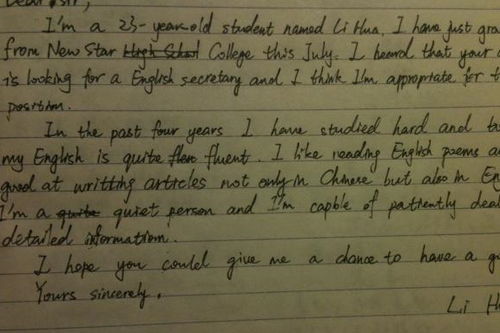 Dear Sir,
I'm a 23-year-old student named Li Hua, I have just gra
from New Star High School College this July. I heard that your
is looking for a English secretary and I think I'm appropriate for t
position.
In the past four years I have studied hard and ta
my English is quite flen fluent. I like reading English poems a
good at writting articles not only in Chinese but also in En
I'm a quite quiet person and I'm capble of patiently deal
detailed information.
I hope you could give me a chance to have a g
Yours sincerely,
Li H